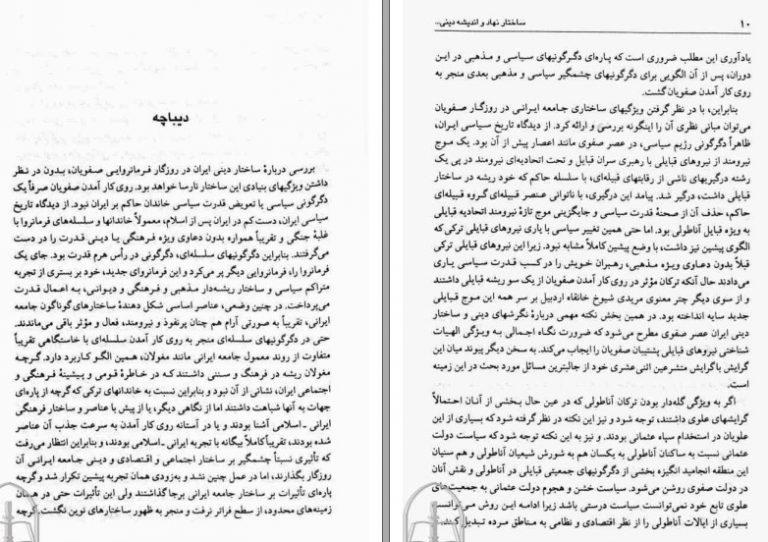 ۱۰ ساختار نهاد و اندیشه دینی...
یادآوری این مطلب ضروری است که پاره‌ای دگرگونیهای سیاسی و مذهبی در این
دوران، پس از آن الگویی برای دگرگونیهای چشمگیر سیاسی و مذهبی بعدی منجر به
روی کار آمدن صفویان گشت.
بنابراین، با در نظر گرفتن ویژگیهای ساختاری جامعه ایرانی در روزگار صفویان
می‌توان مبانی نظری آن را اینگونه بررسی و ارائه کرد. از دیدگاه تاریخ سیاسی ایران،
ظاهراً دگرگونی رژیم سیاسی، در عصر صفوی مانند اعصار پیش از آن بود. یک موج
نیرومند از نیروهای قبایلی با رهبری سران قبایل و تحت اتحادیه‌ای نیرومند در پی یک
رشته درگیریهای ناشی از رقابتهای قبیله‌ای، با سلسله حاکم که خود ریشه در ساختار
قبایلی داشت، درگیر شد. پیامد این درگیری، با ناتوانی عنصر قبیله‌ای گروه قبیله‌ای
حاکم، حذف آن از صحنهٔ قدرت سیاسی و جایگزینی موج تازهٔ نیرومند اتحادیه قبایلی
به ویژه قبایل آناطولی بود. اما حتی همین تغییر سیاسی با یاری نیروهای قبایلی ترکی که
الگوی پیشین نیز داشت، با وضع پیشین کاملاً مشابه نبود. زیرا این نیروهای قبایلی ترکی
قبلاً بدون دعاوی ویژه مذهبی، رهبران خویش را در کسب قدرت سیاسی یاری
می‌دادند حال آنکه ترکان مؤثر در روی کار آمدن صفویان از یک سو ریشه قبایلی داشتند
و از سوی دیگر چتر معنوی مریدی شیوخ خانقاه اردبیل بر سر همه این موج قبایلی
جدید سایه انداخته بود. در همین بخش نکته مهمی دربارهٔ نگرشهای دینی و ساختار
دینی ایران عصر صفوی مطرح می‌شود که ضرورت نگاه اجمالی به ویژگی الهیات
شناختی نیروهای قبایلی پشتیبان صفویان را ایجاب می‌کند. به سخن دیگر پیوند میان این
گرایش باگرایش متشرعین اثنی‌عشری خود از جالبترین مسائل مورد بحث در این زمینه
است.
اگر به ویژگی گله‌دار بودن ترکان آناطولی که در عین حال بخشی از آنان احتمالاً
گرایشهای علوی داشتند، توجه شود و نیز این نکته در نظر گرفته شود که بسیاری از این
علویان در استخدام سپاه عثمانی بودند. و نیز به این نکته توجه شود که سیاست دولت
عثمانی نسبت به ساکنان آناطولی به یکسان هم به شورش شیعیان آناطولی و هم سنیان
این منطقه انجامید انگیزه بخشی از دگرگونیهای جمعیتی قبایلی در آناطولی و نقش آنان
در دولت صفوی روشن می‌شود. سیاست خشن و هجوم دولت عثمانی به جمعیت‌های
علوی تابع خود نمی‌توانست سیاست درستی باشد زیرا ادامه این روش می‌توانست
بسیاری از ایالات آناطولی را از نظر اقتصادی و نظامی به مناطق مرده تبدیل کند.
دیباچه
بررسی دربارهٔ ساختار دینی ایران در روزگار فرمانروایی صفویان، بدون در نظر
داشتن ویژگیهای بنیادی این ساختار نارسا خواهد بود. روی کار آمدن صفویان صرفاً یک
دگرگونی سیاسی یا تعویض قدرت سیاسی خاندان حاکم بر ایران نبود. از دیدگاه تاریخ
سیاسی ایران، دست کم در ایران پس از اسلام، معمولاً خاندانها و سلسله‌های فرمانروا با
غلبهٔ جنگی و تقریباً همواره بدون دعاوی ویژه فرهنگی یا دینی قدرت را در دست
می‌گرفتند. بنابراین دگرگونیهای سلسله‌ای، دگرگونی در رأس هرم قدرت بود. جای یک
فرمانروا را، فرمانروایی دیگر پر می‌کرد و این فرمانروای جدید، خود بر بستری از تجربه
متراکم سیاسی و ساختار ریشه‌دار مذهبی و فرهنگی و دیوانی، به اعمال قدرت
می‌پرداخت. در چنین وضعی، عناصر اساسی شکل دهندهٔ ساختارهای گوناگون جامعه
ایرانی، تقریباً به صورتی آرام هم چنان پرنفوذ و نیرومند، فعال و مؤثر باقی می‌ماندند.
حتی در دگرگونی سلسله‌ای منجر به روی کار آمدن سلسله‌ای با خاستگاهی تقریباً
متفاوت از روند معمول جامعه ایرانی مانند مغولان، همین الگو کاربرد دارد. گرچه
مغولان ریشه در فرهنگ و سنتی داشتند که در خاطرهٔ قومی و پیشینهٔ فرهنگی و
اجتماعی ایران، نشانی از آن نبود و بنابراین نسبت به خاندانهای ترکی که گرچه از پاره‌ای
جهات به آنها شباهت داشتند اما از نگاهی دیگر، یا از پیش با عناصر و ساختار فرهنگی
ایرانی ـ اسلامی آشنا بودند و یا در آستانه روی کار آمدن به سرعت جذب آن عناصر
شده بودند، تقریباً کاملاً بیگانه با تجربه ایرانی ـ اسلامی بودند، و بنابراین انتظار می‌رفت
که تأثیری نسبتاً چشمگیر بر ساختار اجتماعی و اقتصادی و دینی جامعه ایرانی آن
روزگار بگذارند، اما در عمل چنین نشد و به‌زودی همان تجربه پیشین تکرار شد و گرچه
پاره‌ای تأثیرات بر ساختار جامعه ایرانی برجا گذاشتند ولی این تأثیرات حتی در همان
زمینه‌های محدود، از سطح فراتر نرفت و منجر به ظهور ساختارهای نوین نگشت. گرچه